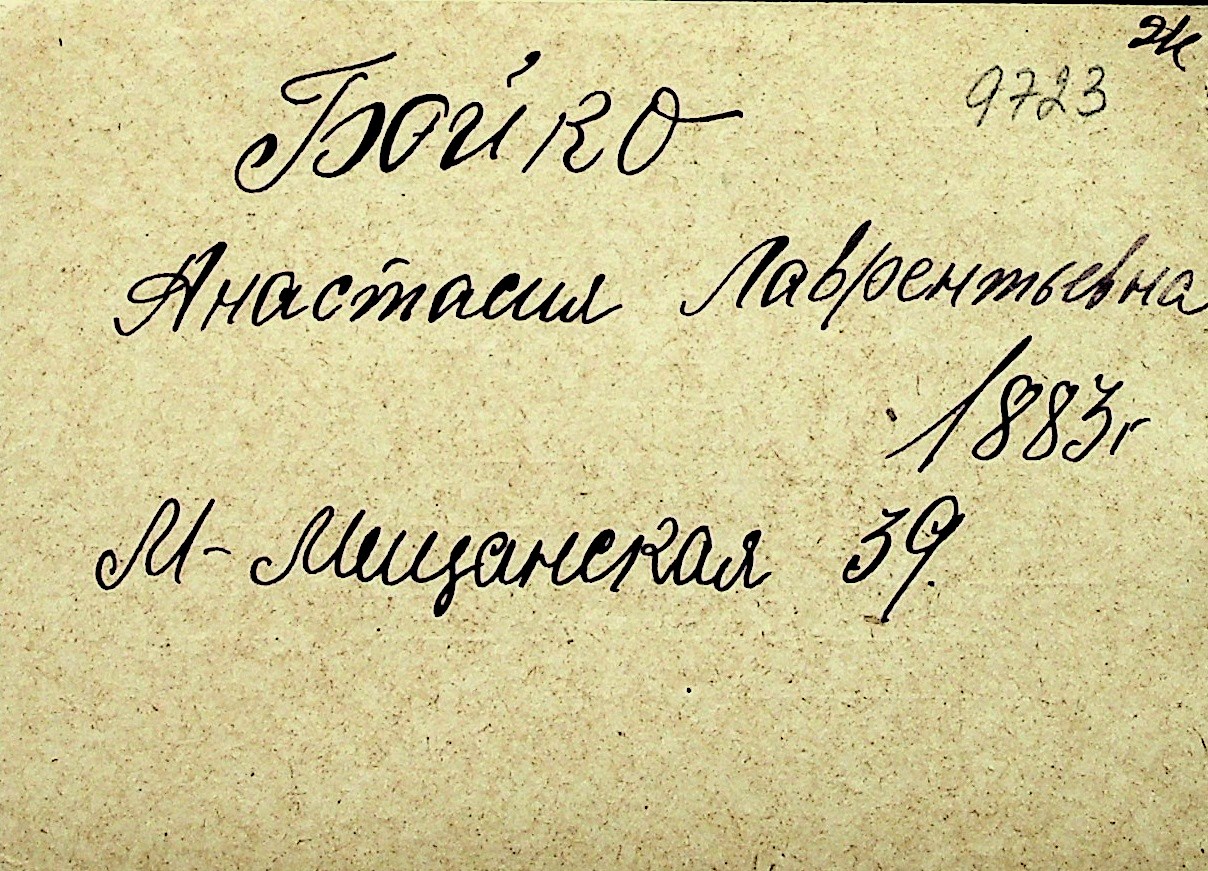 9723
Бойко
Анастасия Лаврентьевна
1883г
М-Мещанская 39.